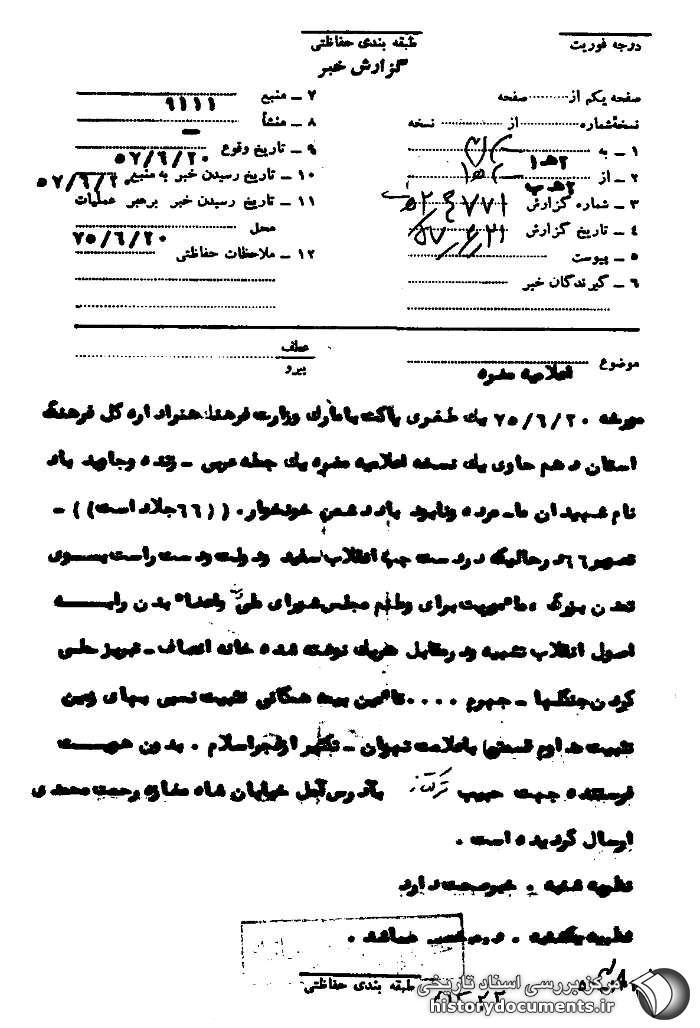 درجه فوریت
طبقه بندی حفاظتی
گزارش خبر
صفحه یکم از ........ صفحه
نسخهٔ شماره ........ از ........ نسخه
۱ ــ به ۲ هـ ۱
۲ ــ از ۲ هـ ب
۳ ــ شماره گزارش
۴ ــ تاریخ گزارش
۵ ــ پیوست
۶ ــ گیرندگان خبر
۷ ــ منبع ۹۱۱۱
۸ ــ منشأ ــ
۹ ــ تاریخ وقوع ۵۷/۶/۲۰
۱۰ ــ تاریخ رسیدن خبر به منبع ۵۷/۶/۲۰
۱۱ ــ تاریخ رسیدن خبر برهبر عملیات
محل ۷۵/۶/۲۰
۱۲ ــ ملاحظات حفاظتی
موضوع اعلامیه مضره
عطف
پیرو
مورخه ۷۵/۶/۲۰ یک طغری پاکت با مارک وزارت فرهنگ هنر اداره کل فرهنگ
استان دهم حاوی یک نسخه اعلامیه مضره یک جمله عربی ــ زنده و جاوید باد
نام شهیدان ما ــ مرده و نابود باد دشمن خونخوار . ((۶۶ جلاد است)) ــ
تصویر ۶۶ در حالیکه در دست چپ انقلاب سفید و دولت و دست راست بسوی
تمدن بزرگ ماموریت برای وطنم مجلس شورای ملی و اعضاء بدن را به
اصول انقلاب تشبیه و در مقابل هر یک نوشته شده خانه انصاف ــ
کردن جنگلها ــ جهرم .... تامین بیمه همگانی تثبیت نسبی بهای زمین
تثبیت مداوم قیمتها با علامت تهران ــ تکثیر از فجر اسلام . بدون هویت
فرستنده جهت حبیب بآدرس آمل خیابان شاه مغازه رحمت محمدی
ارسال گردیده است .
نظریه شنبه . خبر صحت دارد
نظریه یکشنبه . میباشد .
طبقه بندی حفاظتی
مرکز بررسی اسناد تاریخی
historydocuments.ir